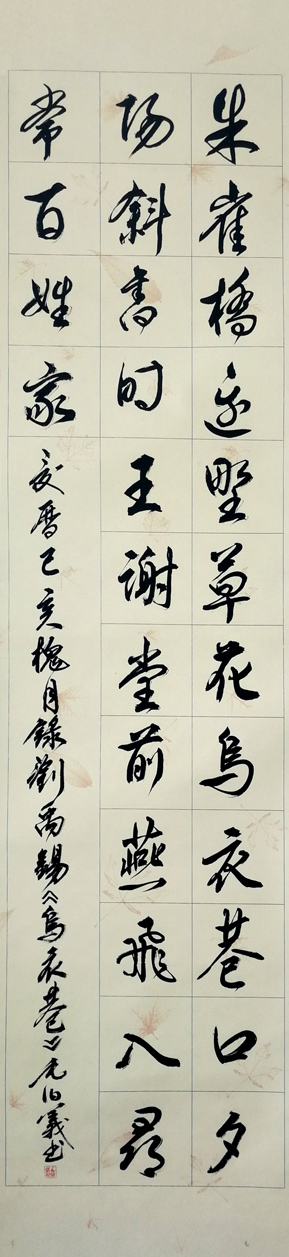 朱雀橋邊野草花烏衣巷口夕
陽斜舊时王謝堂前燕飛入尋
常百姓家
夏曆己亥槐月錄劉禹錫《烏衣巷》元伯義书